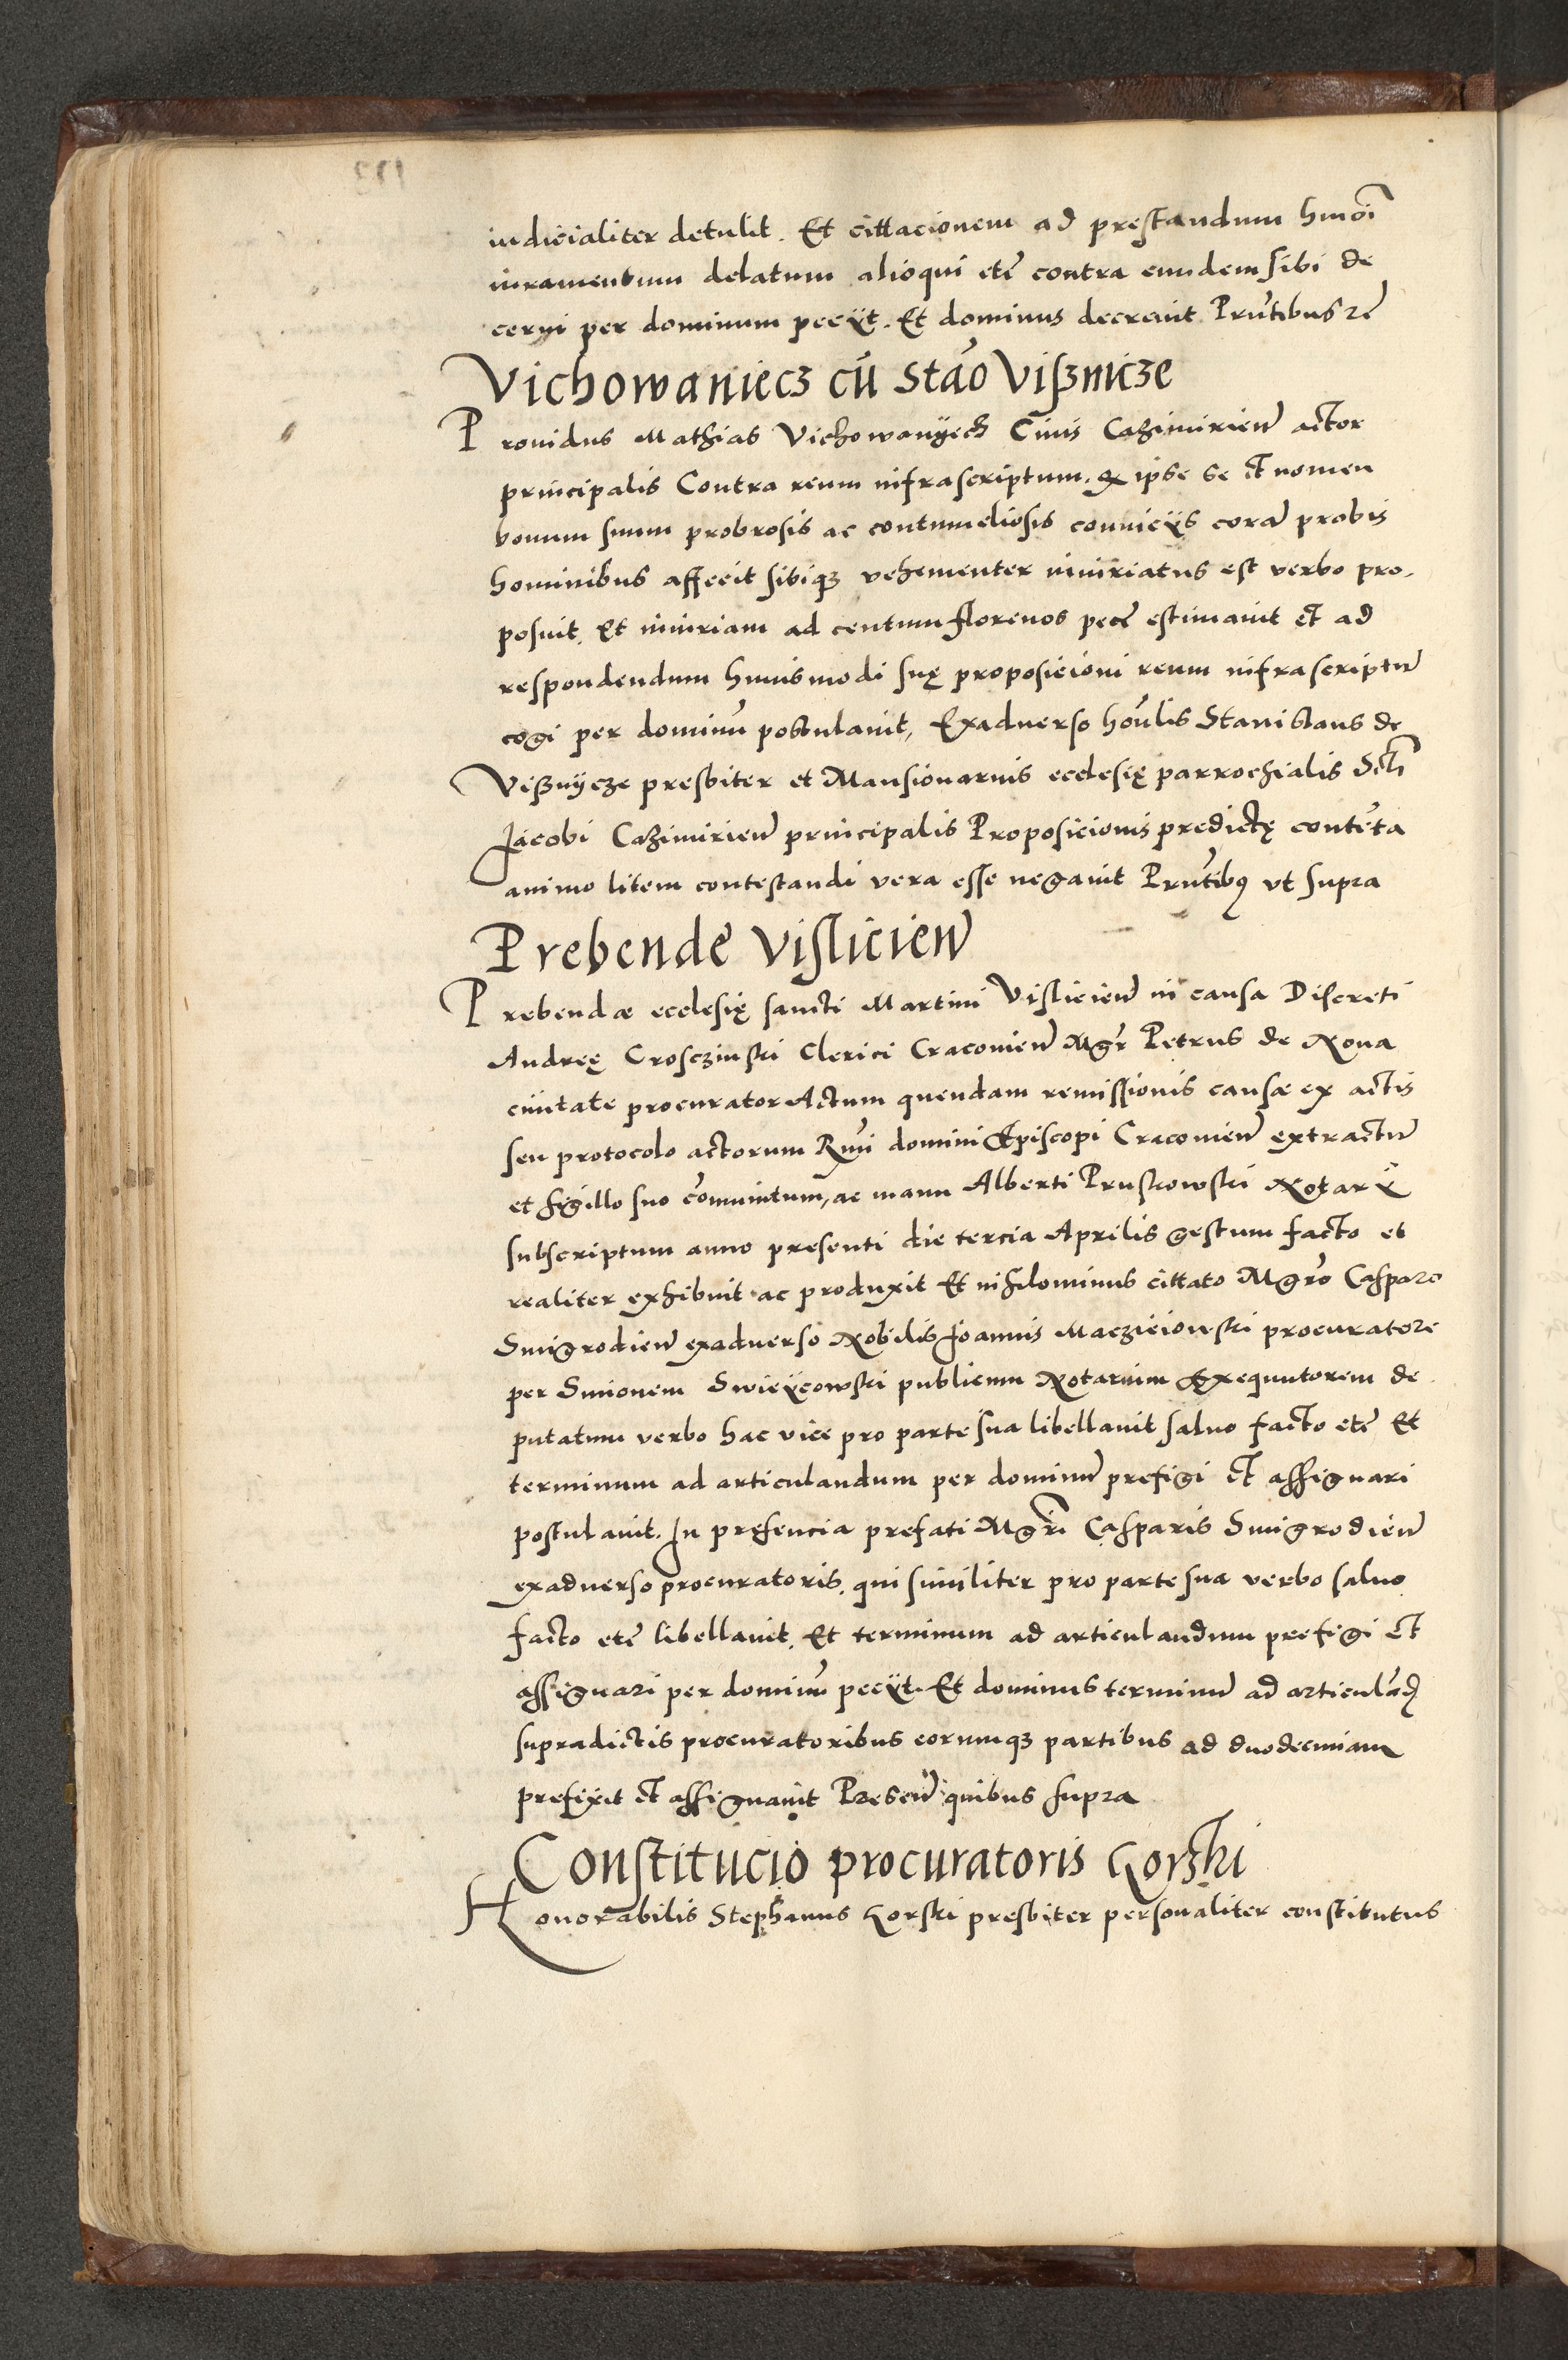 iudicialiter detulit. Et cittacionem ad prestandum hmoi
iuramentum delatum alioqui etc̃ contra eundem sibi de
cerni per dominum peciit. Et dominus decrevit Prn̄tibus rc̃
Vichowaniecz cū Stāo Visznicze
Providus Mathias Vichowanyecz Civis Cazimirien̄ actor
principalis Contra reum infrascriptum. qx ipse se et nomen
bonum suum probrosis ac contumeliosis conviciis corā probis
hominibus affecit sibiqȝ vehementer iniuriatus est verbo pro-
posuit. Et iniuriam ad centum florenos pecc̃ estimavit et ad
respondendum huiusmodi suę proposicioni reum infrascriptū
cogi per dominū postulavit, Exadverso hon̄lis Stanislaus de
Visznycze presbiter et Mansionarius ecclesię parrochialis Scti
Jacobi Cazimirien̄ principalis Proposicionis predictę contēta
animo litem contestandi vera esse negavit Prn̄tibꝰ ut supra
Prebende Vislicien̄
Prebendæ ecclesię sancti Martini Vislicien̄ in causa Discreti
Andreę Crosczinski Clerici Cracovien̄ Mgr̄ Petrus de Nova
civitate procurator Actum quendam remissionis causæ ex actis
seu protocolo actorum Rm̄i domini Episcopi Cracovien̄ extractū
et sigillo suo cōmunitum, ac manu Alberti Pruskowski Notarii
subscriptum anno presenti die tercia Aprilis gestum facto et
realiter exhibuit ac produxit Et nihilominus cittato Mgr̄o Casparo
Smigrodien̄ exadverso Nobilis Joannis Macziciowski procuratore
per Simonem Swieycowski publicum Notarium Exequutorem de
putatum verbo hac vice pro parte sua libellavit salvo facto etc̃ Et
terminum ad articulandum per dominū prefigi et assignari
postulavit. In presencia prefati Mgr̄i Casparis Smigrodien̄
exadverso procuratoris, qui similiter pro parte sua verbo salvo
facto etc̃ libellavit, Et terminum ad articulandum prefigi et
assignari per dominū peciit. Et dominus terminū ad articulād
supradictis procuratoribus eorumqȝ partibus ad duodecimam
prefixit et assignavit Presen̄ quibus supra
Constitucio procuratoris Gorski
Honorabilis Stephanus Gorski presbiter personaliter constitutus